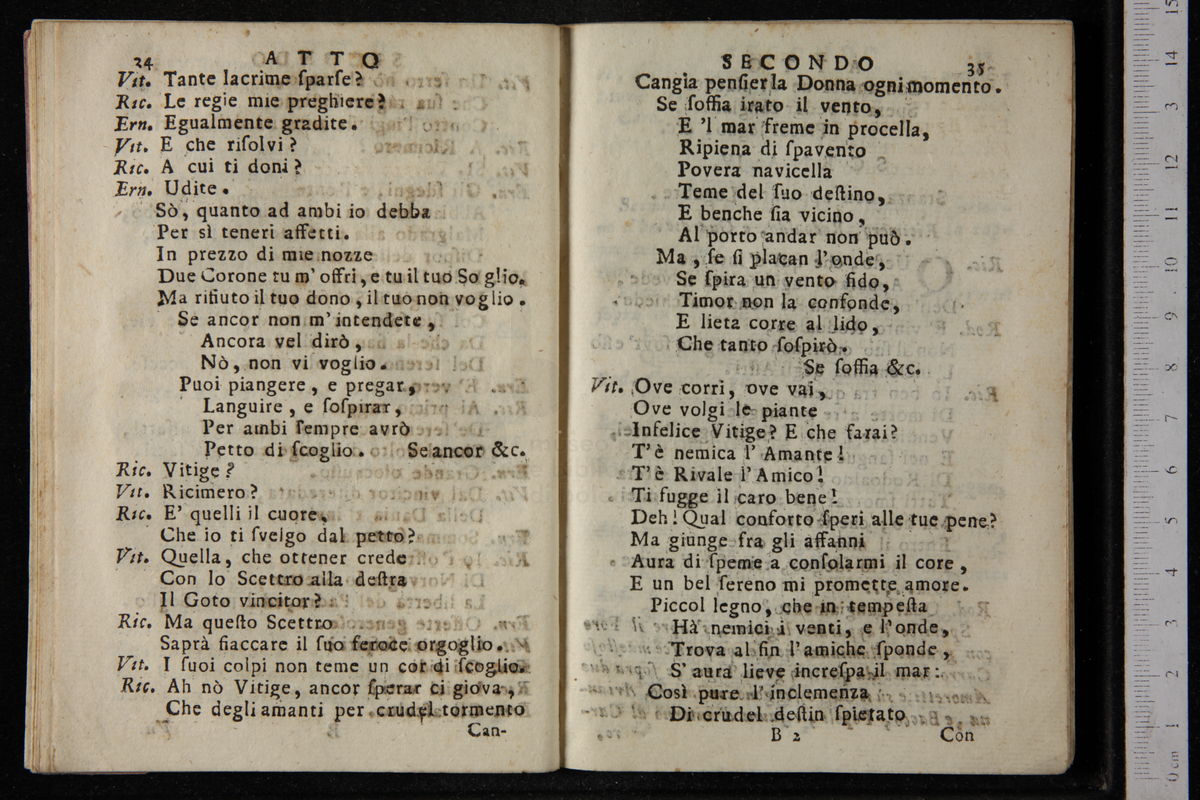 34 ATTO
Vit. Tante lacrime ſparſe?
Ric. Le regie mie preghiere?
Ern. Egualmente gradite.
Vit. E che riſolvi?
Ric. A cui ti doni?
Ern. Udite.
Sò, quanto ad ambi io debba
Per sì teneri affetti.
In prezzo di mie nozze
Due Corone tu m' offri, e tu il tuo So glio.
Ma rifiuto il tuo dono, il tuo non voglio.
Se ancor non m' intendete,
Ancora vel dirò,
Nò, non vi voglio.
Puoi piangere, e pregar,
Languire, e ſoſpirar,
Per ambi ſempre avrò
Petto di ſcoglio. Se ancor &c.
Ric. Vitige?
Vit. Ricimero?
Ric. E' quelli il cuore,
Che io ti ſvelgo dal petto?
Vit. Quella, che ottener crede
Con lo Scettro alla deſtra
Il Goto vincitor?
Ric. Ma queſto Scettro
Saprà fiaccare il ſuo feroce orgoglio.
Vit. I ſuoi colpi non teme un cor di ſcoglio.
Ric. Ah nò Vitige, ancor ſperar ci giova,
Che degli amanti per crudel tormento
Can-
SECONDO 35
Cangia penſier la Donna ogni momento.
Se ſoffia irato il vento,
E 'l mar freme in procella,
Ripiena di ſpavento
Povera navicella
Teme del ſuo deſtino,
E benche ſia vicino,
Al porto andar non può.
Ma, ſe ſi placan l'onde,
Se ſpira un vento fido,
Timor non la confonde,
E lieta corre al lido,
Che tanto ſoſpirò.
Se ſoffia &c.
Vit. Ove corri, ove vai,
Ove volgi le piante
Infelice Vitige? E che farai?
T' è nemica l' Amante!
T' è Rivale l' Amico!
Ti fugge il caro bene!
Deh! Qual conforto ſperi alle tue pene?
Ma giunge fra gli affanni
Aura di ſpeme a conſolarmi il core,
E un bel ſereno mi promette amore.
Piccol legno, che in tempeſta
Hà nemici i venti, e l'onde,
Trova al fin l'amiche ſponde,
S' aura lieve increſpa il mar:
Così pure l' inclemenza
Di crudel deſtin ſpietato
B 2 Con